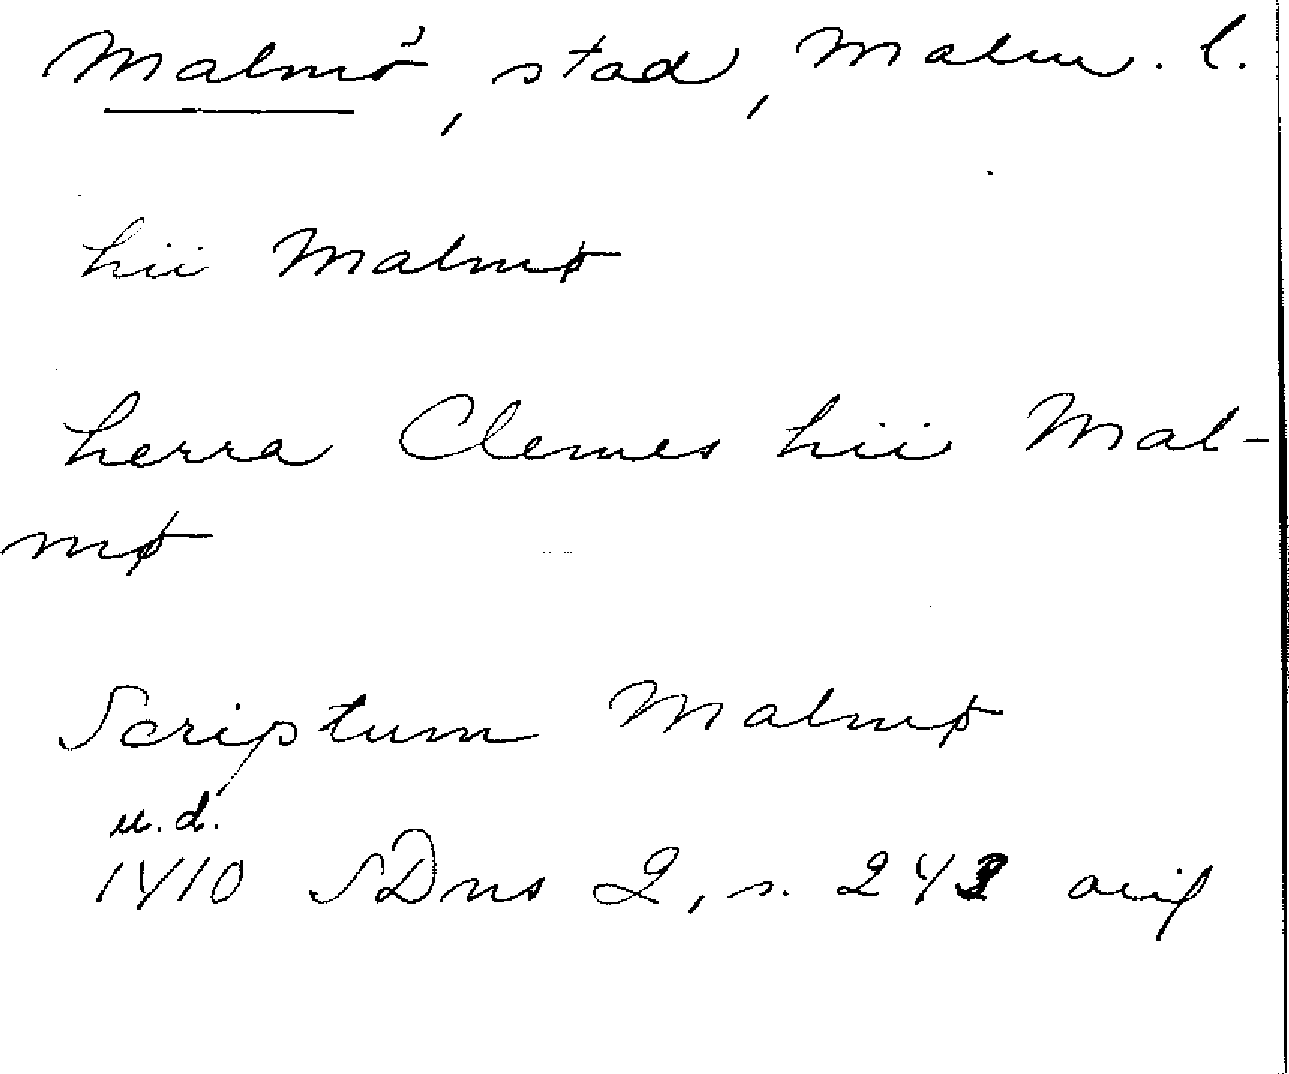 Malmö, stad, Malm. l.
hii Malmø
herra Clemes hii Mal-
mø
Scriptum Malmø
u.d.
1410 SDns 2, s. 242 orig